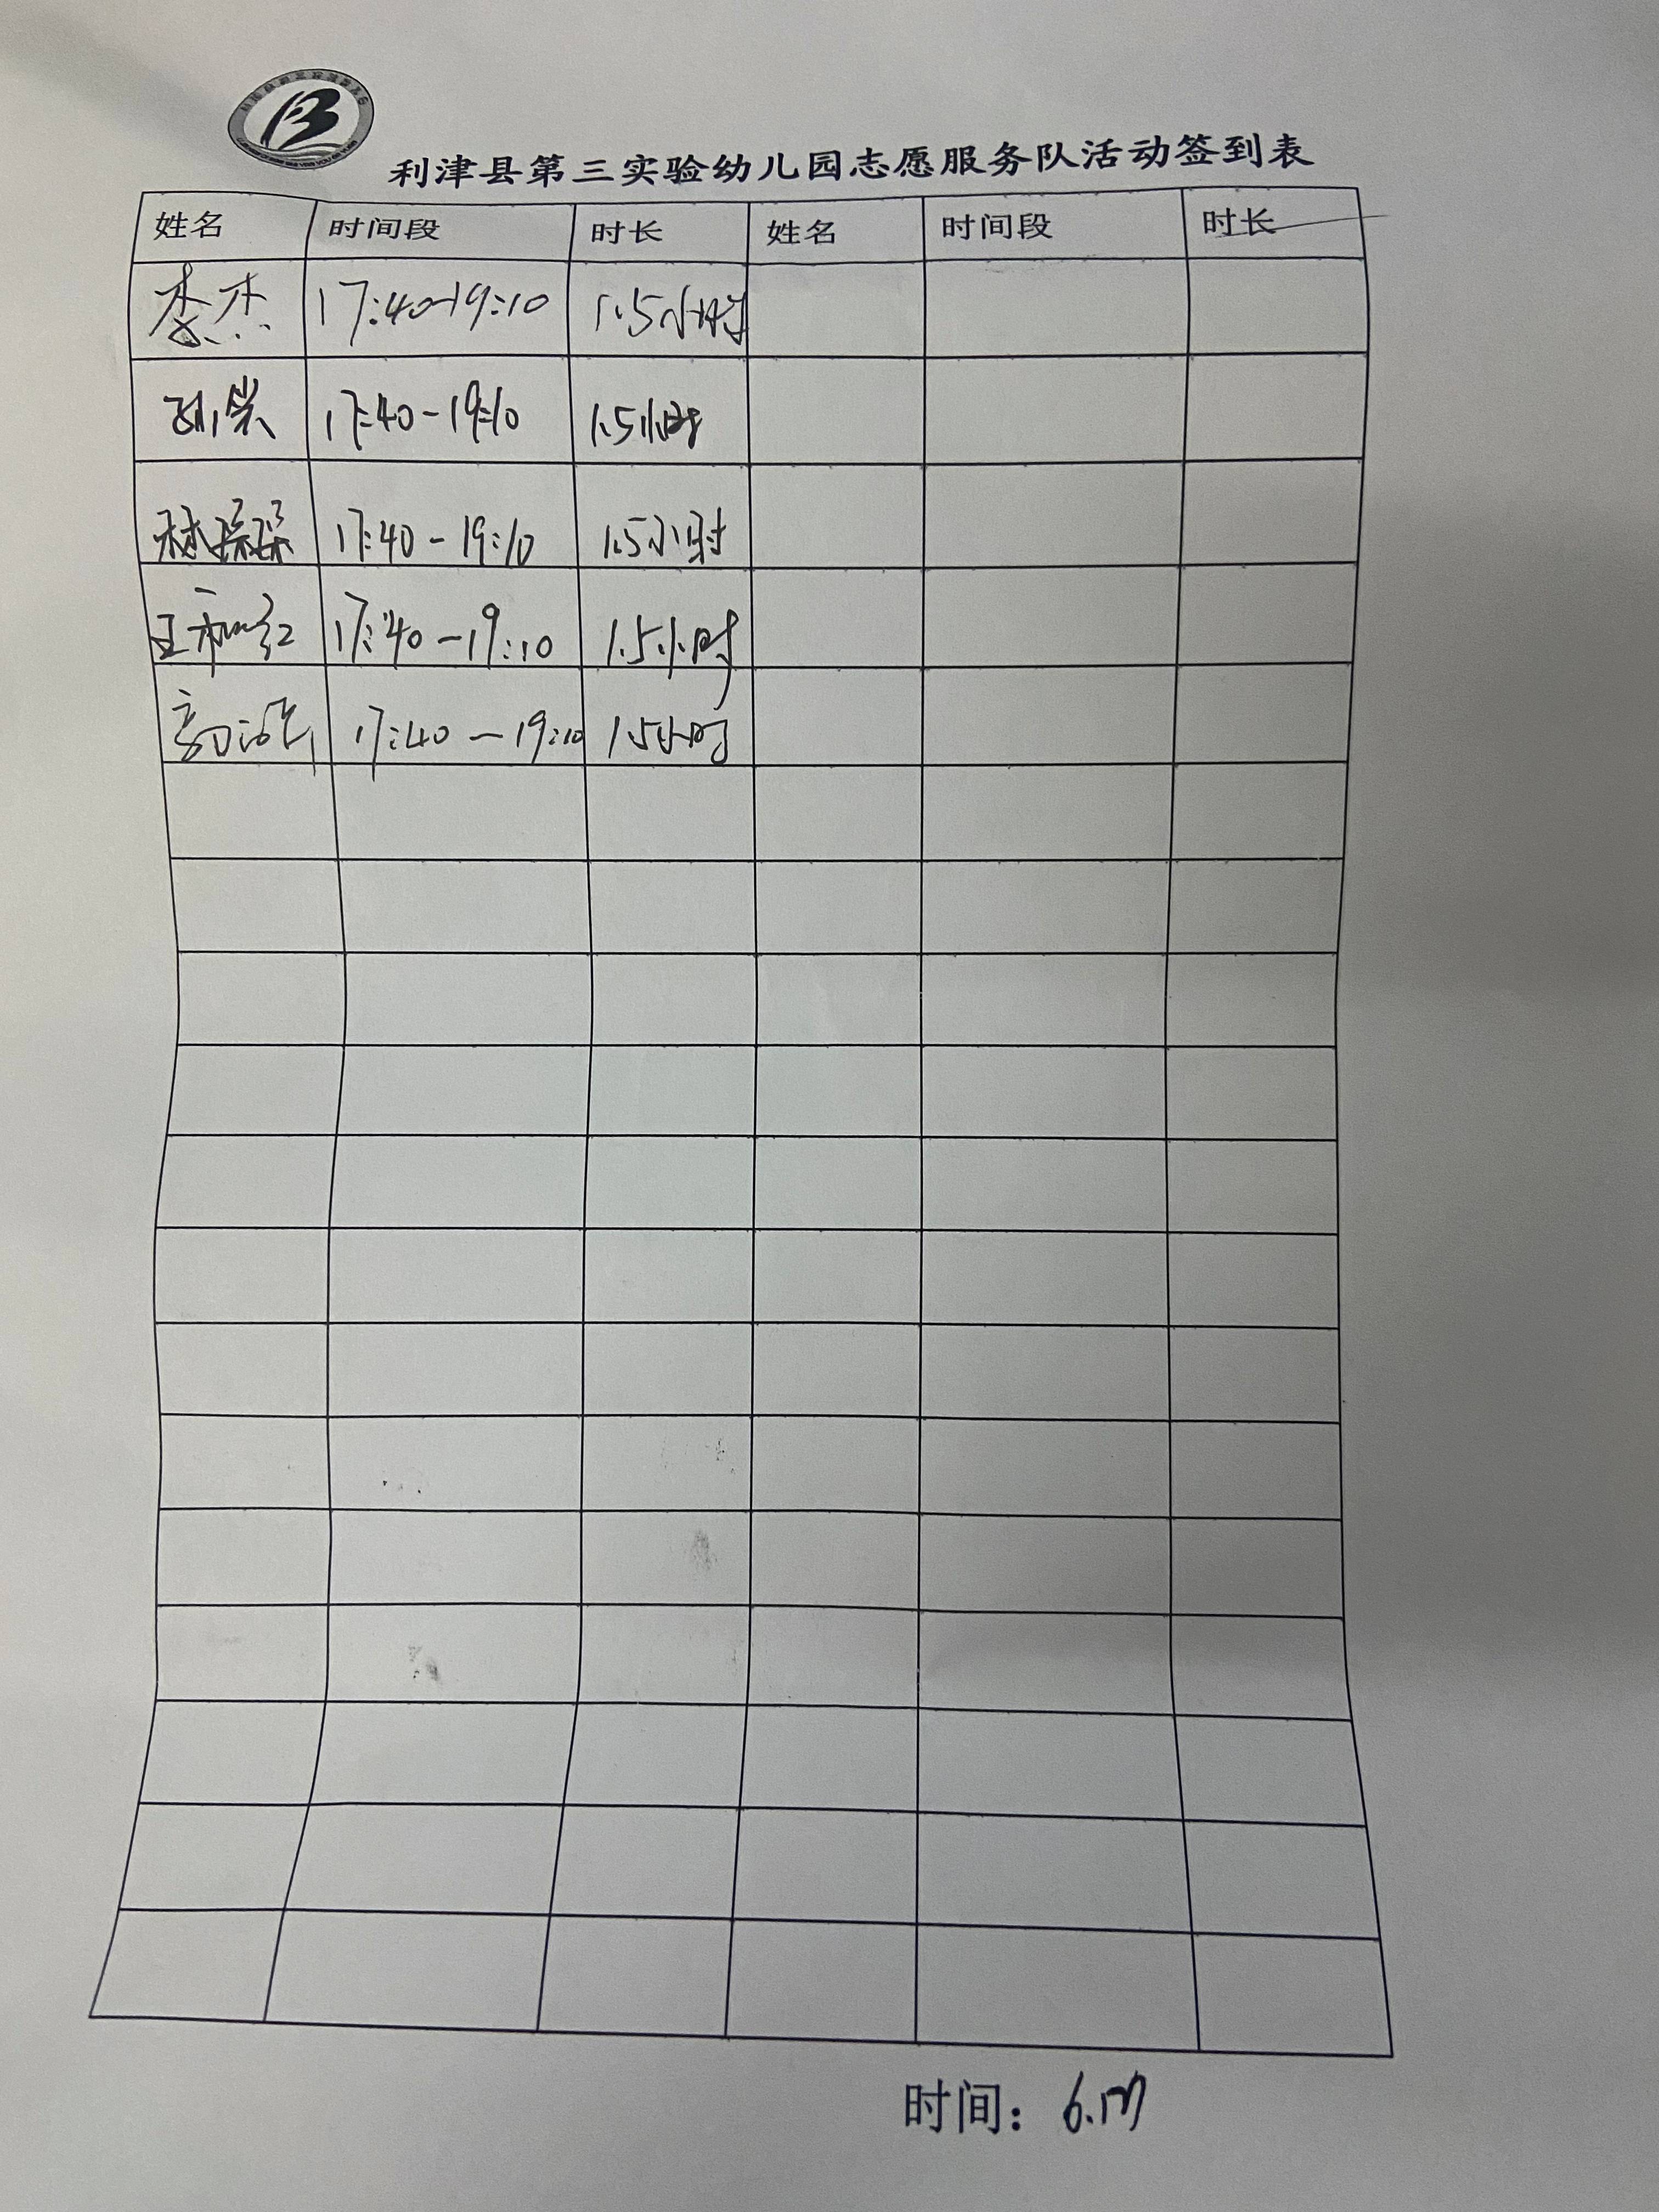 利津县第三实验幼儿园志愿服务队活动签到表
姓名 时间段 时长 姓名 时间段 时长
李杰 17:40-19:10 1.5小时
17:40-19:10 1.5小时
林琛琛 17:40-19:10 1.5小时
王和红 17:40-19:10 1.5小时
17:40-19:10 1.5小时
时间：6.